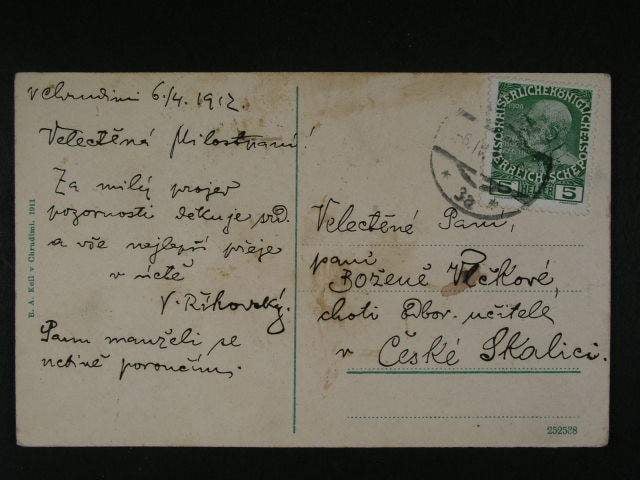 v Chrudimi 6./4. 1912.
Velectěná Milostpaní!
Za milý projev
pozornosti děkuje srd.
a vše nejlepší přeje
v úctě
V. Říkovský.
Panu manželi se
uctivě poroučím.
B. A. Kell v Chrudimi. 1911
KAISERLICHEKÖNIGLICHE
5 5
3a
Velectěné Paní,
paní
Boženě Vlčkové,
choti odbor. učitele
v České Skalici.
252538